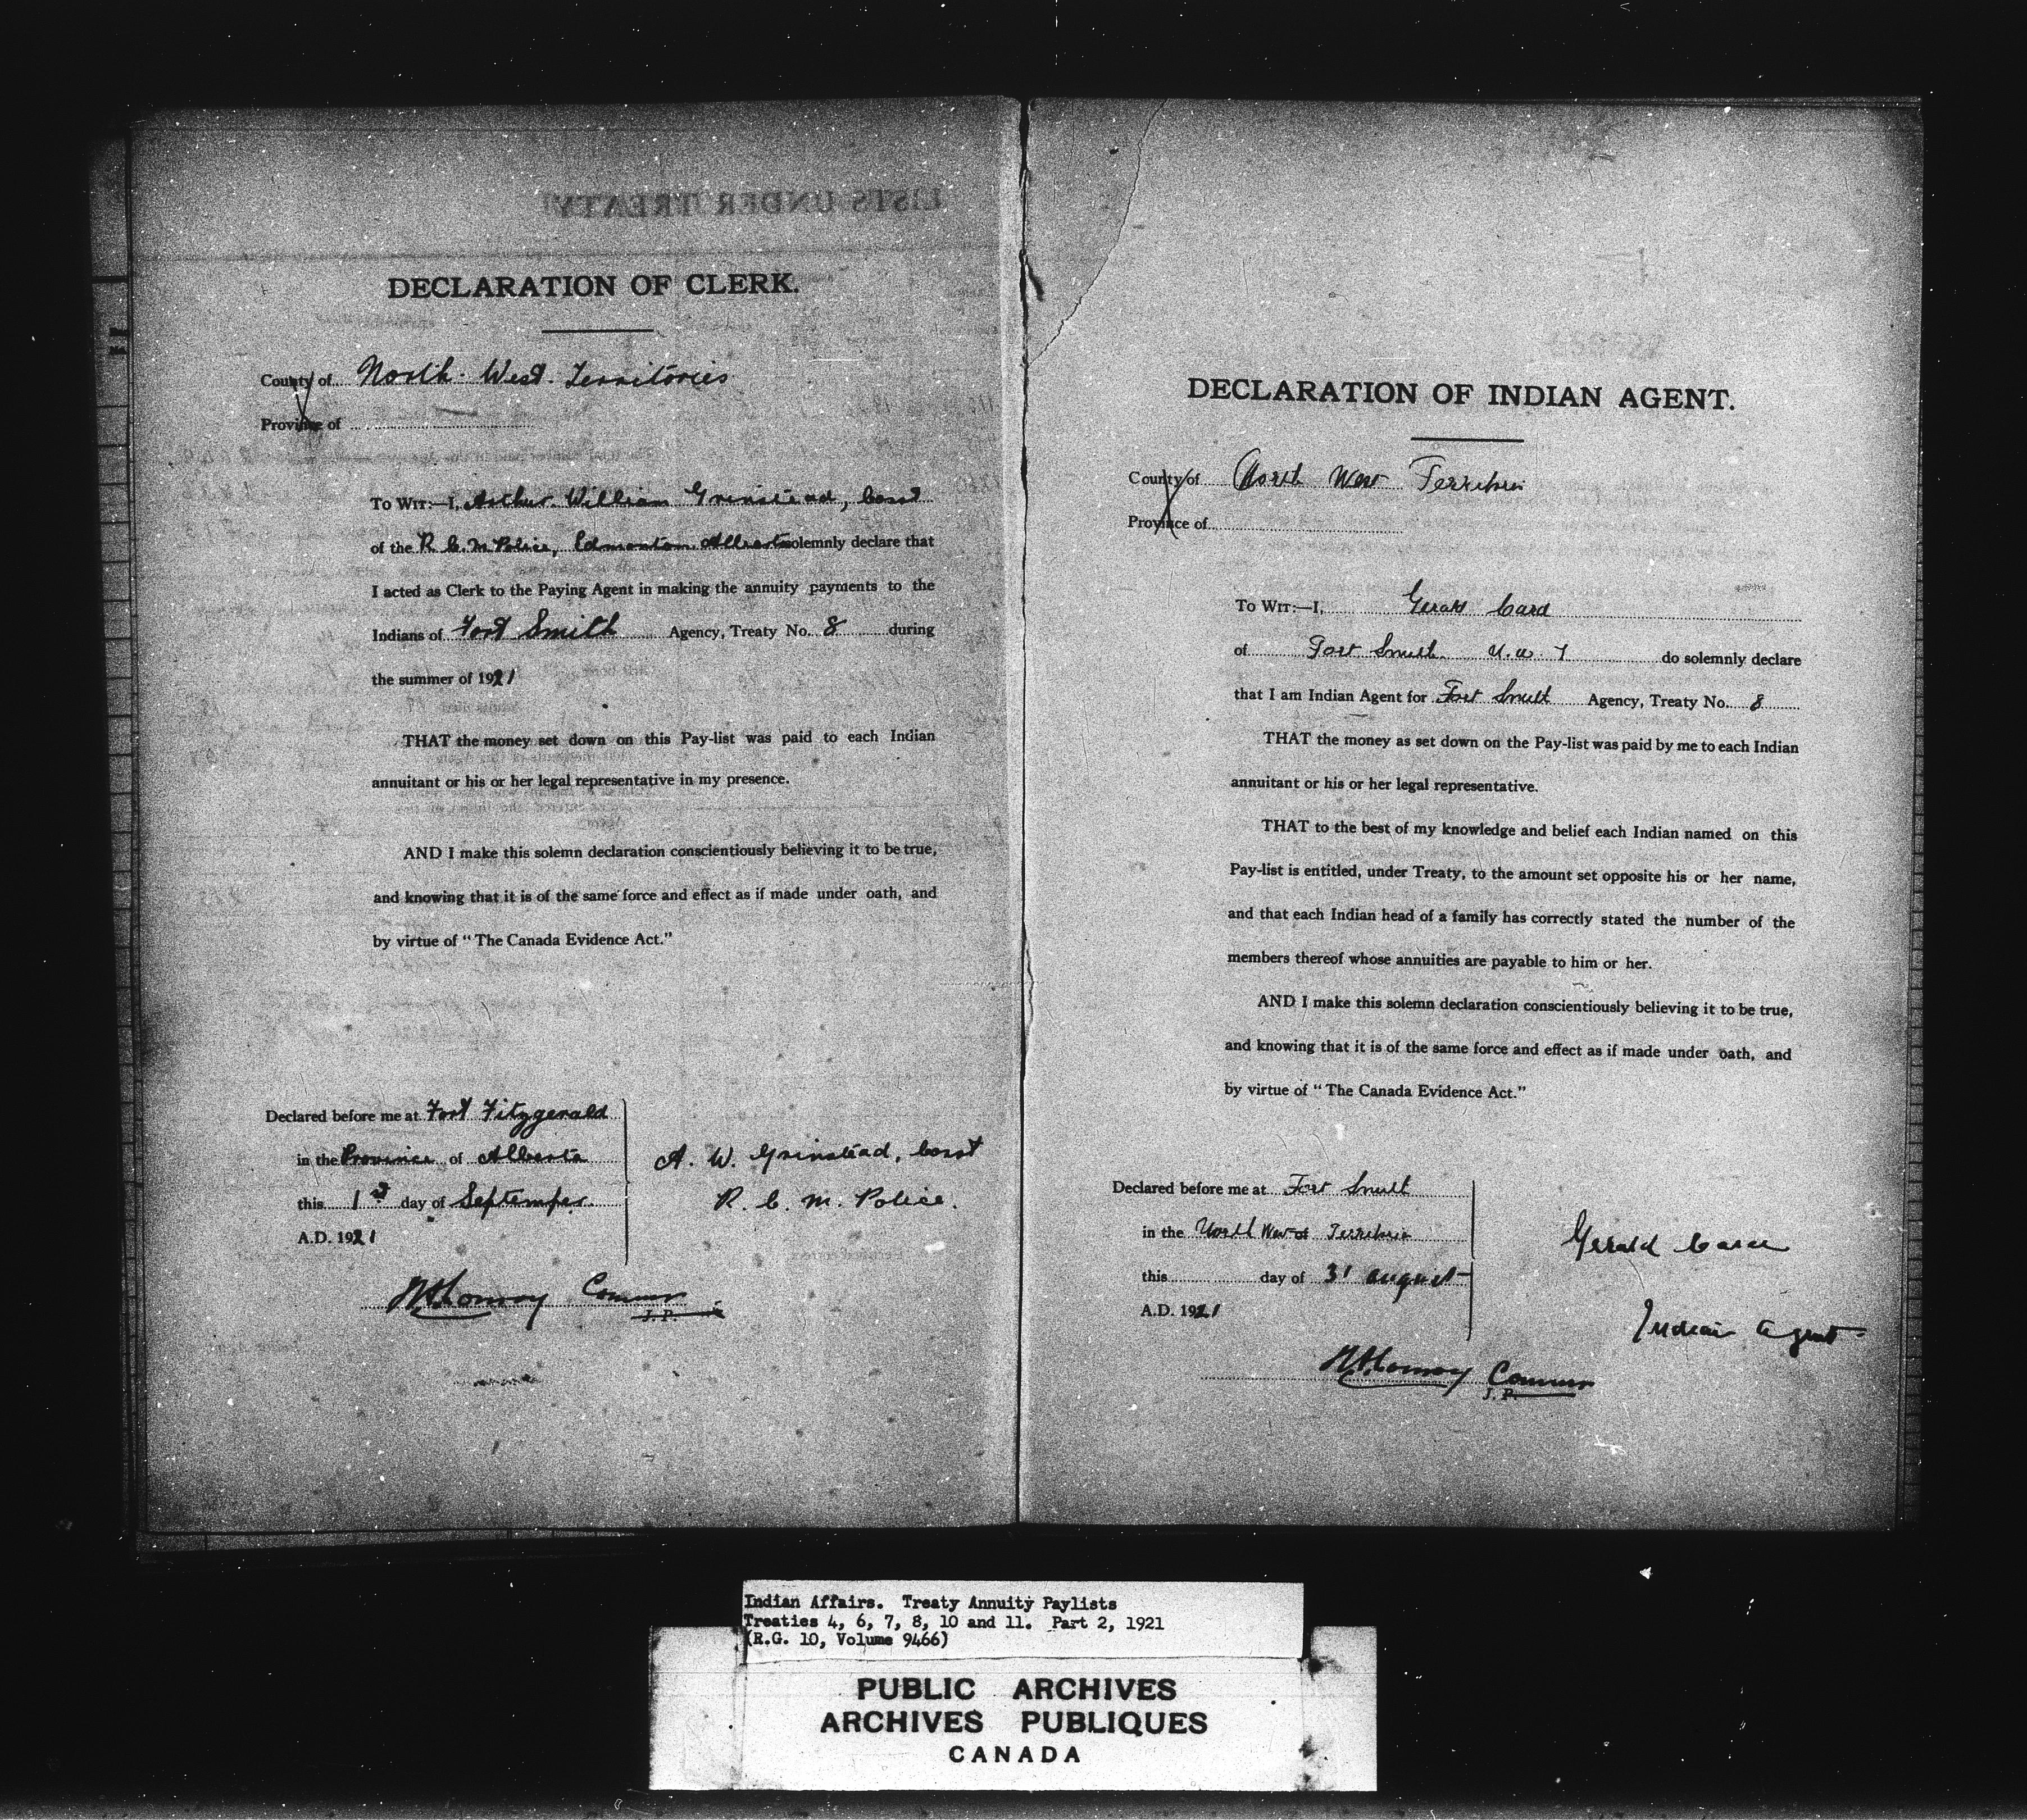 DECLARATION OF CLERK.
County of North West Territories
Province of
To Wit:—I, Arthur William Grinstead, Const
of the R.C.M. Police, Edmonton Alberta solemnly declare that
I acted as Clerk to the Paying Agent in making the annuity payments to the
Indians of Fort Smith Agency, Treaty No. 8 during
the summer of 1921
THAT the money set down on this Pay-list was paid to each Indian
annuitant or his or her legal representative in my presence.
AND I make this solemn declaration conscientiously believing it to be true,
and knowing that it is of the same force and effect as if made under oath, and
by virtue of "The Canada Evidence Act."
Declared before me at Fort Fitzgerald
in the Province of Alberta
this 1st day of September
A.D. 1921
A. W. Grinstead, Const
R. C. M. Police.
H A Conroy Commr
J. P.
DECLARATION OF INDIAN AGENT.
County of North West Territories
Province of
To Wit:—I, Gerald Card
of Fort Smith N.W.T do solemnly declare
that I am Indian Agent for Fort Smith Agency, Treaty No. 8
THAT the money as set down on the Pay-list was paid by me to each Indian
annuitant or his or her legal representative.
THAT to the best of my knowledge and belief each Indian named on this
Pay-list is entitled, under Treaty, to the amount set opposite his or her name,
and that each Indian head of a family has correctly stated the number of the
members thereof whose annuities are payable to him or her.
AND I make this solemn declaration conscientiously believing it to be true,
and knowing that it is of the same force and effect as if made under oath, and
by virtue of "The Canada Evidence Act."
Declared before me at Fort Smith
in the North West of Territories
this day of 31 August
A.D. 1921
Gerald Card
Indian Agent
H A Conroy Commr
J. P.
Indian Affairs. Treaty Annuity Paylists
Treaties 4, 6, 7, 8, 10 and 11. Part 2, 1921
(R.G. 10, Volume 9466)
PUBLIC ARCHIVES
ARCHIVES PUBLIQUES
CANADA